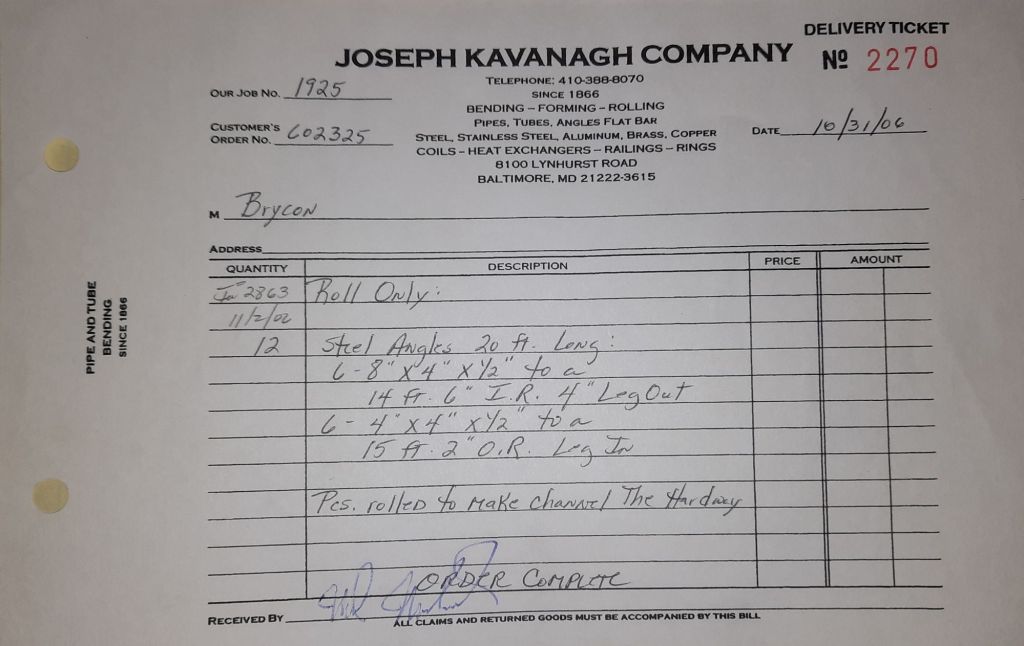 DELIVERY TICKET
JOSEPH KAVANAGH COMPANY
Nº 2270
TELEPHONE: 410-388-8070
SINCE 1866
BENDING – FORMING – ROLLING
PIPES, TUBES, ANGLES FLAT BAR
STEEL, STAINLESS STEEL, ALUMINUM, BRASS, COPPER
COILS – HEAT EXCHANGERS – RAILINGS – RINGS
8100 LYNHURST ROAD
BALTIMORE, MD 21222-3615
OUR JOB NO. 1925
CUSTOMER'S
ORDER NO. 602325
DATE 10/31/06
M Brycon
ADDRESS
QUANTITY DESCRIPTION PRICE AMOUNT
2863 Roll Only:
12 Steel Angles 20 ft. Long:
6-8" X 4" X 1/2" to a
14 ft. 6" I.R. 4" Leg Out
6-4" X 4" X 1/2" to a
15 ft. 2" O.R. Leg In
Pcs. rolled to make channel The Hardway
ORDER COMPLETE
RECEIVED BY
ALL CLAIMS AND RETURNED GOODS MUST BE ACCOMPANIED BY THIS BILL
PIPE AND TUBE
BENDING
SINCE 1866